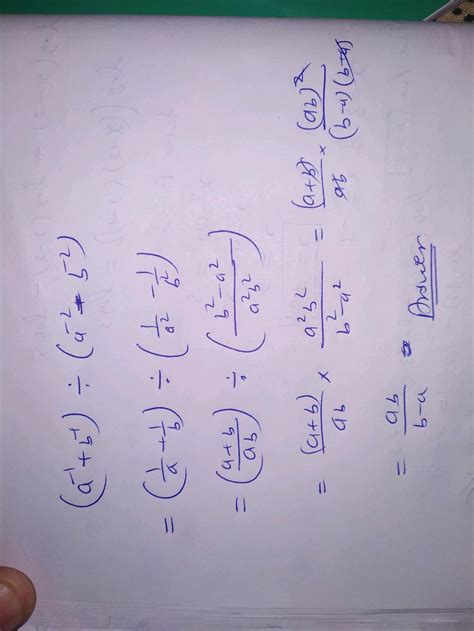 (a⁻¹ + b⁻¹) ÷ (a⁻² - b⁻²)
= (1/a + 1/b) ÷ (1/a² - 1/b²)
= (a+b/ab) ÷ (b²-a²/a²b²)
= (a+b)/ab × a²b²/b²-a² = (a+b)/ab × (ab)²/(b-a)(b+a)
= ab/b-a Answer